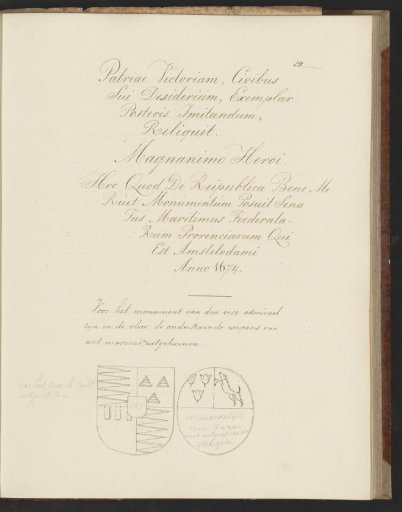 Patriae Victoriam, Civibus
Sui Desiderium, Exemplar
Posteris Imitandum,
Reliquit.
Magnanimo Heroi.
Hoc Quod De Reipublica Bene Me
-Ruit Monumentum Posuit Sena
Tus Maritimus Foederata-
Rum Provinciarum Qui
Est Amstelodami
Anno 1674.
Voor het monument van den vice admiraal
zijn in de vloer de onderstaande wapens van
wit marmer uitgehouwen
vermoedelijk